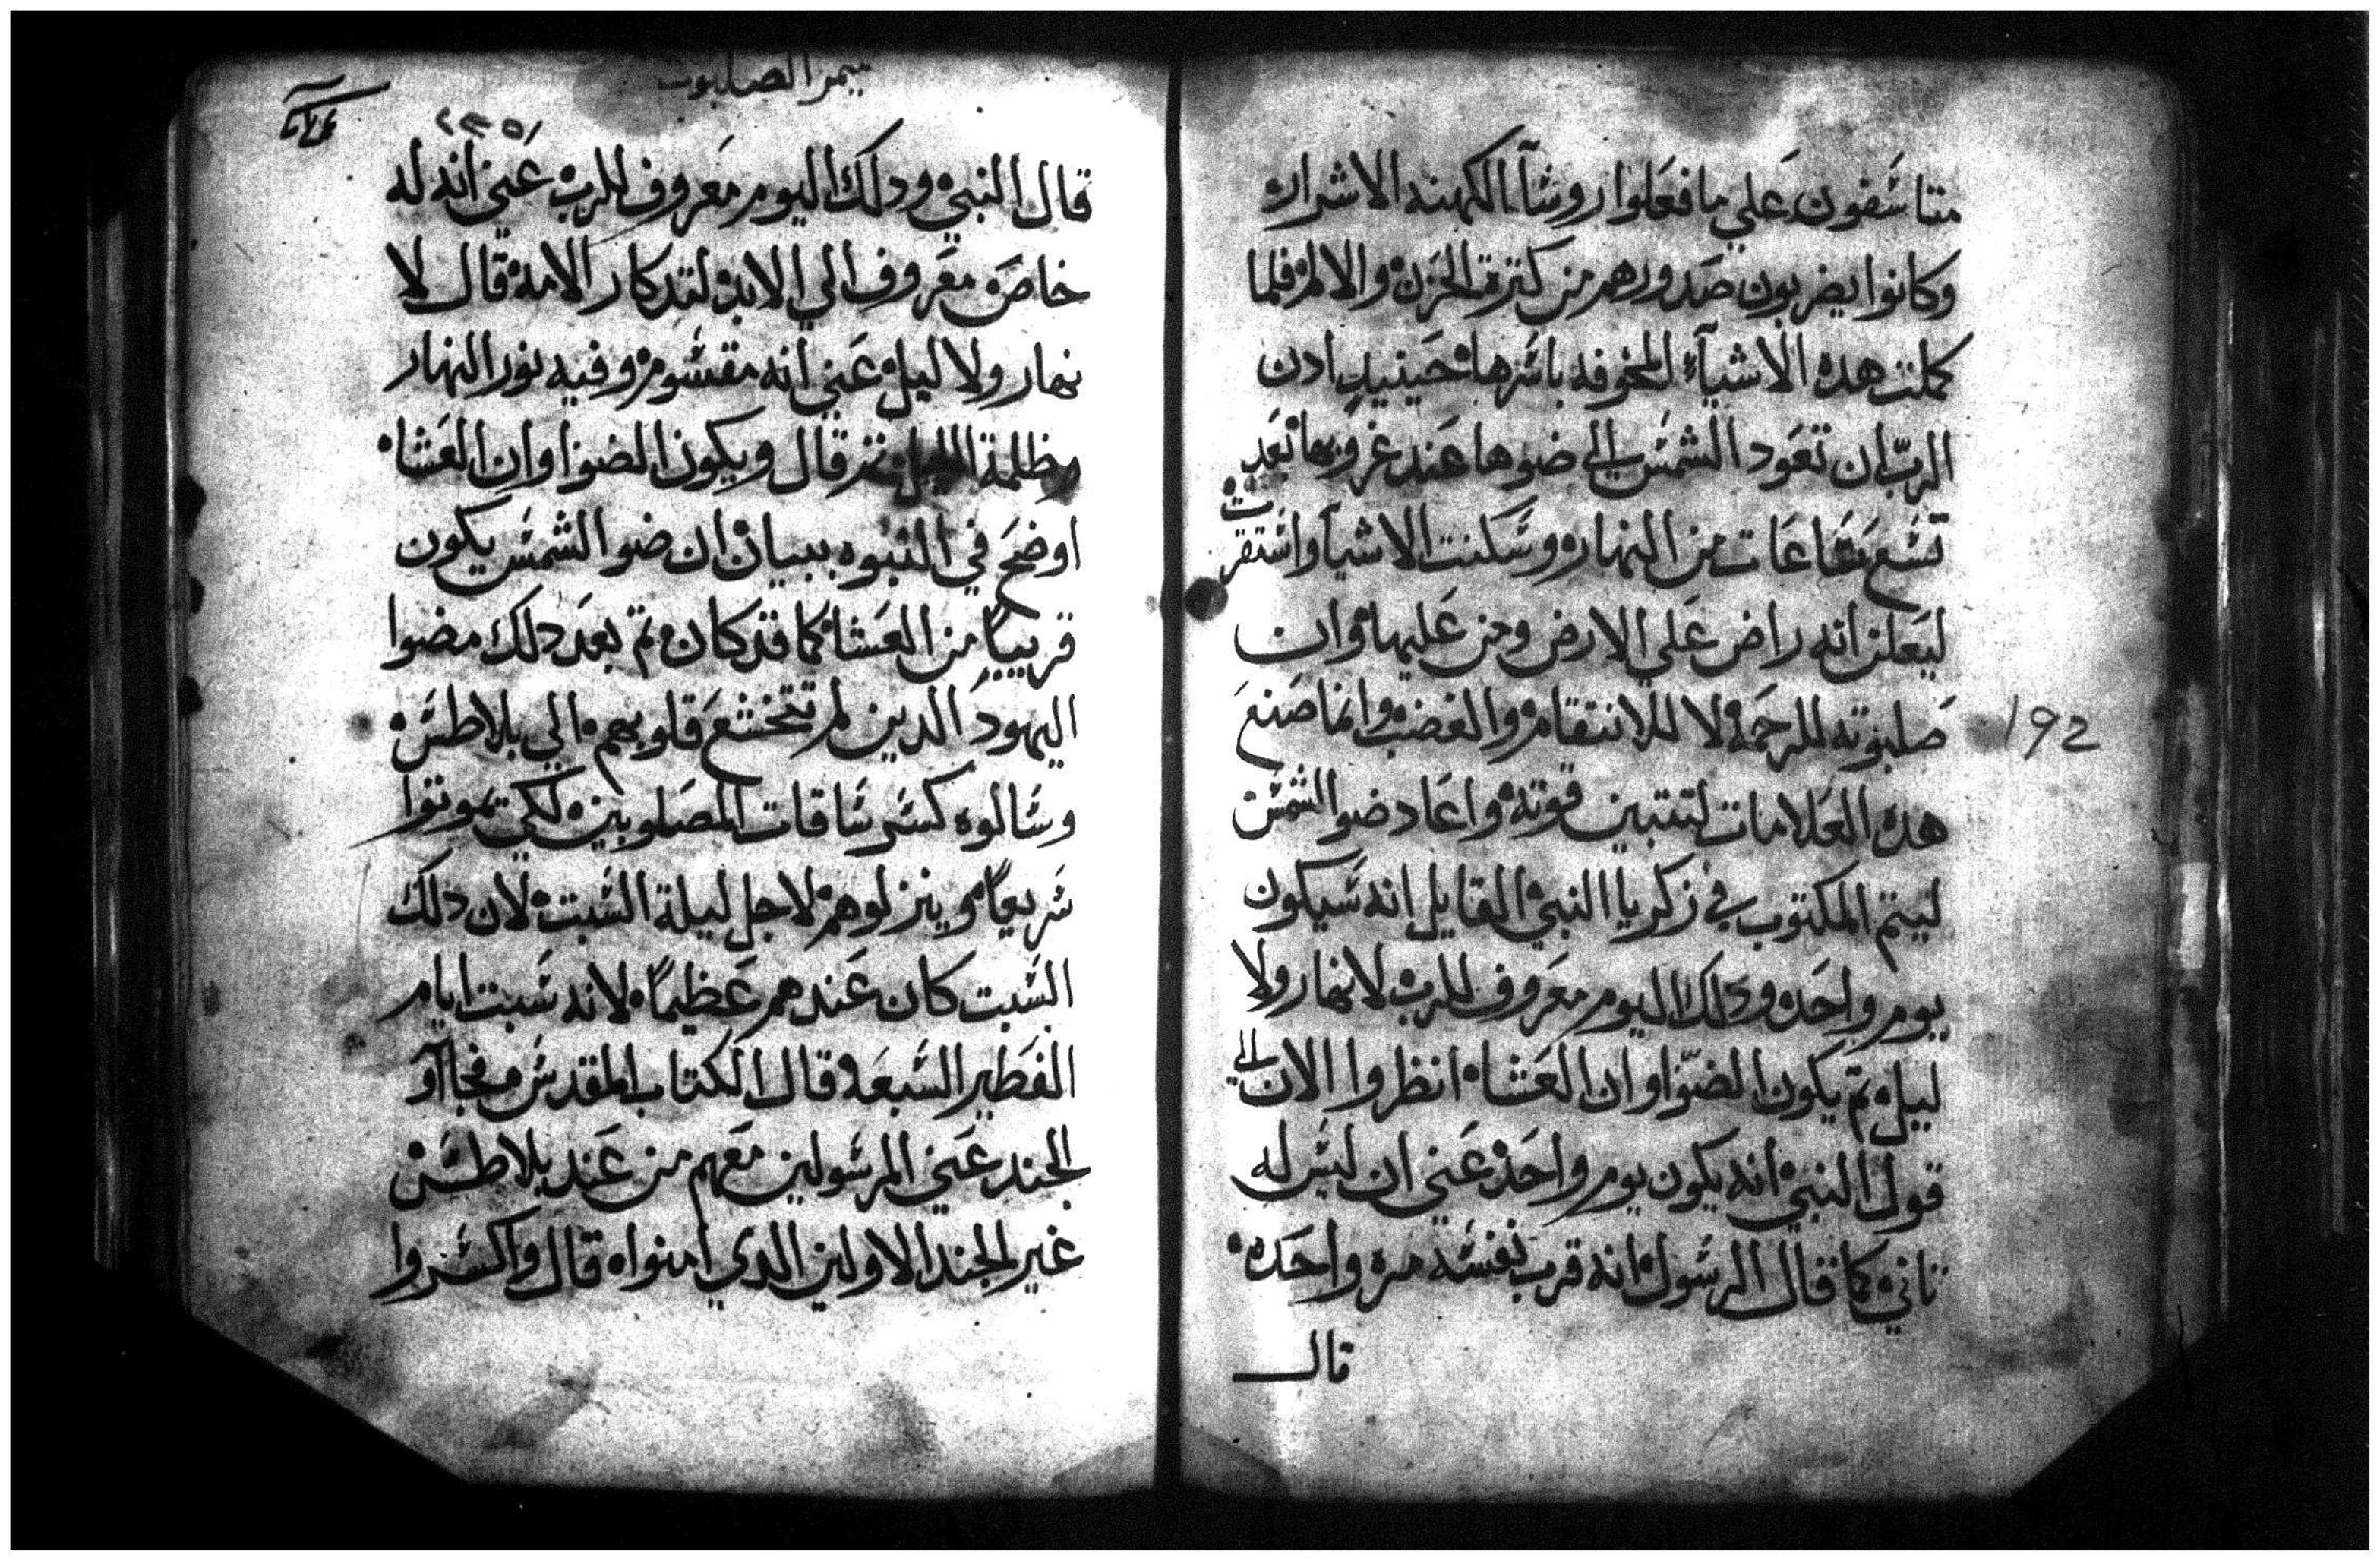 متاسفون علي ما فعلوا روسآ الكهنه الاشرار
وكانوا يضربون صدورهم من كترة الحزن والالم فلما
كملت هده الاشيآء المخوفه باسرها حينيد ادن
الرب ان تعود الشمس الي ضوها عند غروبها بعد
تسع ساعات من النهار وسكنت الاشيا واستقرت
ليعلن انه راض علي الارض وحن عليها وان
صلبوته للرحمه لا للانتقام والغضب وانما صنع
هده العلامات لتتبين قوته واعاد ضو الشمس
ليتم المكتوب في زكريا النبي القايل انه سيكون
يوم واحد ودلك اليوم معروف للرب لا نهار ولا
ليل تم يكون الضوا وان العشا انظروا الان الي
قول النبي انه يكون يوم واحد عني ان ليس له
تاني كما قال الرسول انه قرب نفسه مره واحده
قال
192
ميمر الصلبوت
٢٣٥
قال النبي ودلك اليوم معروف للرب عني انه له
خاصه معروف الي الابد لتدكار الامه قال لا
نهار ولا ليل عني انه مقسوم وفيه نور النهار
وظلمة الليل تم قال ويكون الضوا وان العشا
اوضح في النبوه ببيان ان ضو الشمس يكون
قريبا من العشا كما قد كان تم بعد دلك مضوا
اليهود الدين لم تتخشع قلوبهم الي بلاطس
وسالوه كسر ساقات المصلوبين لكي يموتوا
سريعاً وينزلوهم لاجل ليلة السبت لان دلك
السبت كان عندهم عظيماً لانه سبت ايام
الفطير السبعه قال الكتاب المقدس فجاآو
الجند عني المرسولين معهم من عند بلاطس
غير الجند الاولين الدي امنوا قال واكسروا